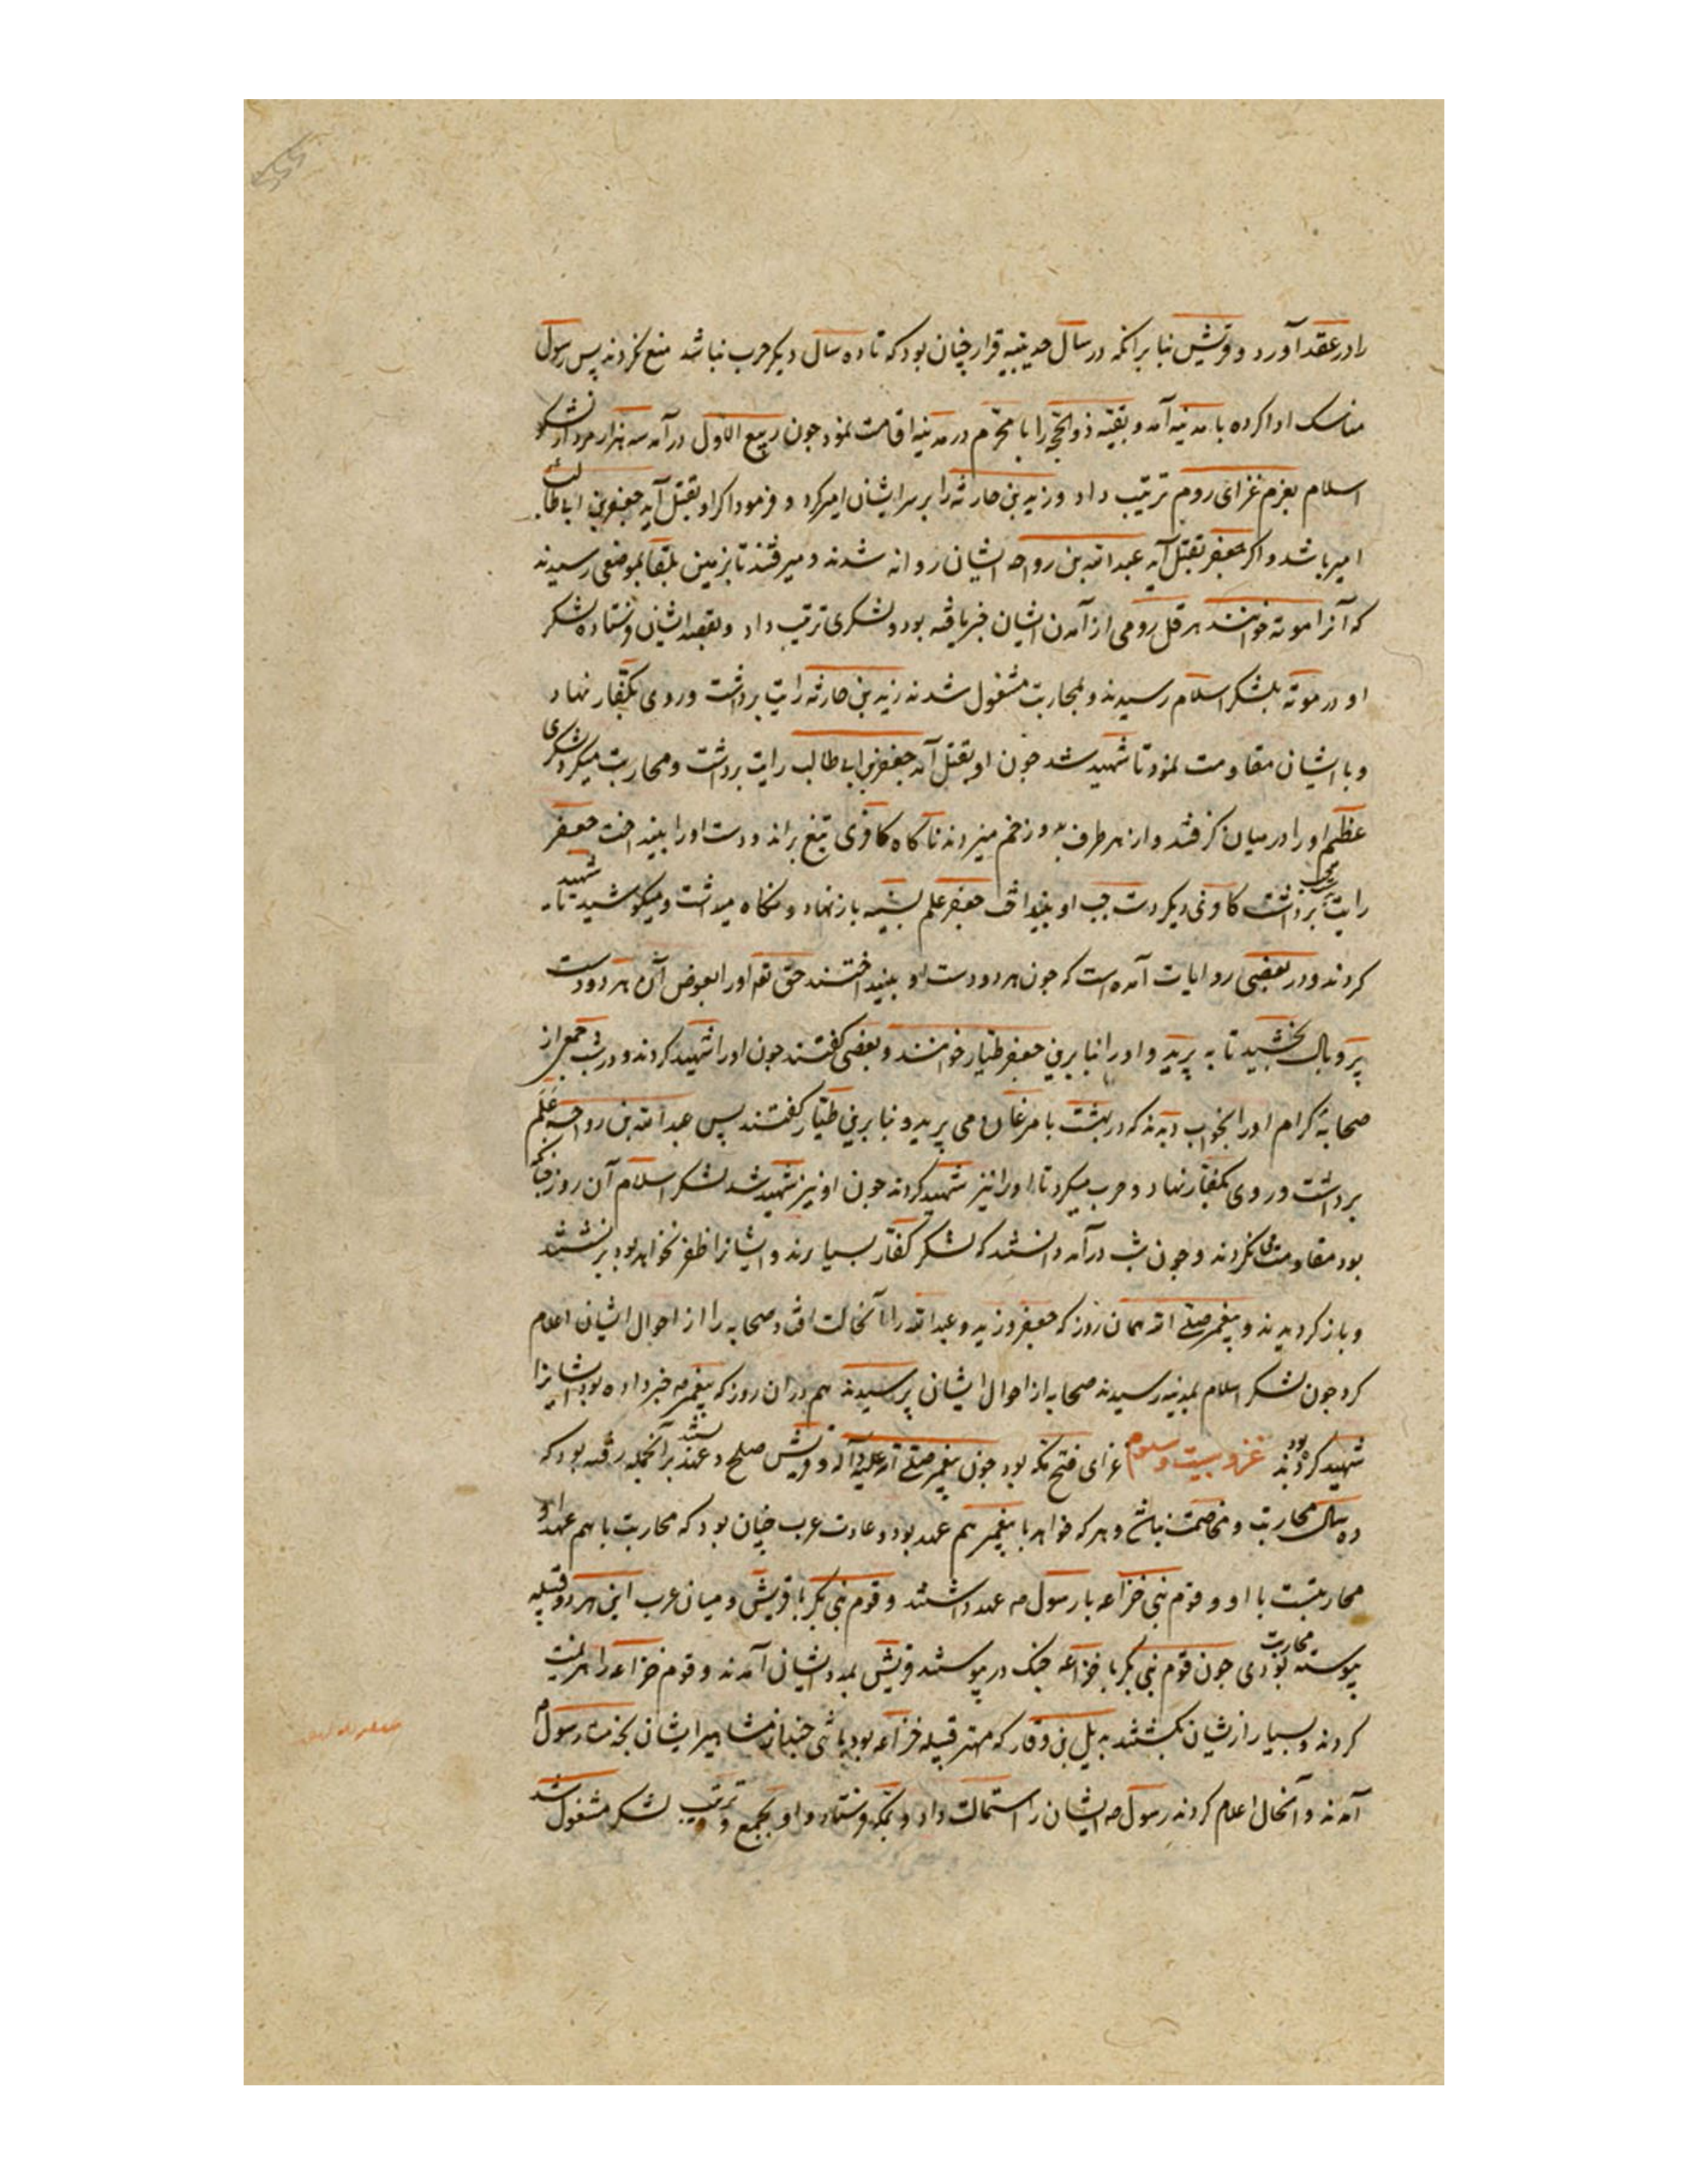 را در عقد آورد و قریش بنا برانکه در سال حدیبیه قرار چنان بود که تا ده سال دیکر حرب نباشد منع نکردند پس رسول
مناسک ادا کرده با مدینه آمد و بقیه ذو الحجه را با محرم در مدینه اقامت نمود چون ربیع الاول درآمد سه هزار مرد از لشکر
اسلام بعزم غزای روم ترتیب داد و زید بن حارثه را بر سر ایشان امیر کرد و فرمود اکر او بقتل آید جعفر بن ابی طالب
امیر باشد و اکر جعفر بقتل آید عبد الله بن رواحه ایشان روانه شدند و میرفتند تا بزمین بلقا بموضعی رسیدند
که آنرا موته خوانند هرقل رومی از آمدن ایشان خبر یافته بود و لشکری ترتیب داد و بقصد ایشان فرستاده لشکر
او در موته بلشکر اسلام رسیدند و بمحاربت مشغول شدند زید بن حارثه رایت برداشت و روی بکفار نهاد
و با ایشان مقاومت نمود تا شهید شد چون او بقتل آمد جعفر بن ابی طالب رایت برداشت و محاربت میکرد لشکری
عظیم او را در میان کرفتند و از هر طرف برو زخم میزدند ناکاه کافری تیغ براند و دست او را بینداخت جعفر
رایت بدست چپ برداشت کافری دیکر دست چپ او بینداخت جعفر علم بسینه باز نهاد و نکاه میداشت و میکوشید تا شهید
کردند و در بعضی روایات آمده است که چون هر دو دست او بینداختند حق تع او را بعوض آن هر دو دست
پر و بال بخشید تا به پرید و او را بنا برین جعفر طیار خوانند و بعضی کفتند چون او را شهید کردند و در شب جمعی از
صحابهٔ کرام او را بخواب دیدند که در بهشت با مرغان می پرید و بنا برین طیار کفتند پس عبد الله بن رواحه علم
برداشت و روی بکفار نهاد و حرب میکرد تا او را نیز شهید کردند چون او نیز شهید شد لشکر اسلام آن روز چنانکه
بود مقاومتها کردند و چون شب درآمد دانستند که لشکر کفار بسیارند و ایشانرا ظفر نخواهد بود برنشستند
و باز کردیدند و پیغمبر صلی الله همان روز که جعفر و زید و عبد الله را آنحالت افتاد صحابه را از احوال ایشان اعلام
کرد چون لشکر اسلام بمدینه رسیدند صحابه از احوال ایشان پرسیدند هم دران روز که پیغمبر صه خبر داده بود ایشانرا
شهید کرده بودند غزو بیست و سوم غزای فتح مکه بود چون پیغمبر صلی الله علیه و آله و قریش صلح و عهد بستند برآنجمله رفته بود که
ده سال محاربت و مخاصمت نباشد و هر که خواهد با پیغمبر هم عهد بود و عادت عرب چنان بود که محاربت با هم عهد او
محاربتست با او و قوم بنی خزاعه با رسول صه عهد داشتند و قوم بنی بکر با قریش و میان عرب این هر دو قبیله
پیوسته محاربت بودی چون قوم بنی بکر با خزاعه جنک در پیوستند قریش بمدد ایشان آمدند و قوم خزاعه را هزیمت
کردند و بسیار از یشان بکشتند بدیل بن وقار که مهتر قبیله خزاعه بود با تنی چند از مشاهیر ایشان بخدمت رسول
آمدند و آنحال اعلام کردند رسول صه ایشان را استمالت داد و بمکه فرستاد و او بجمع و ترتیب لشکر مشغول شد